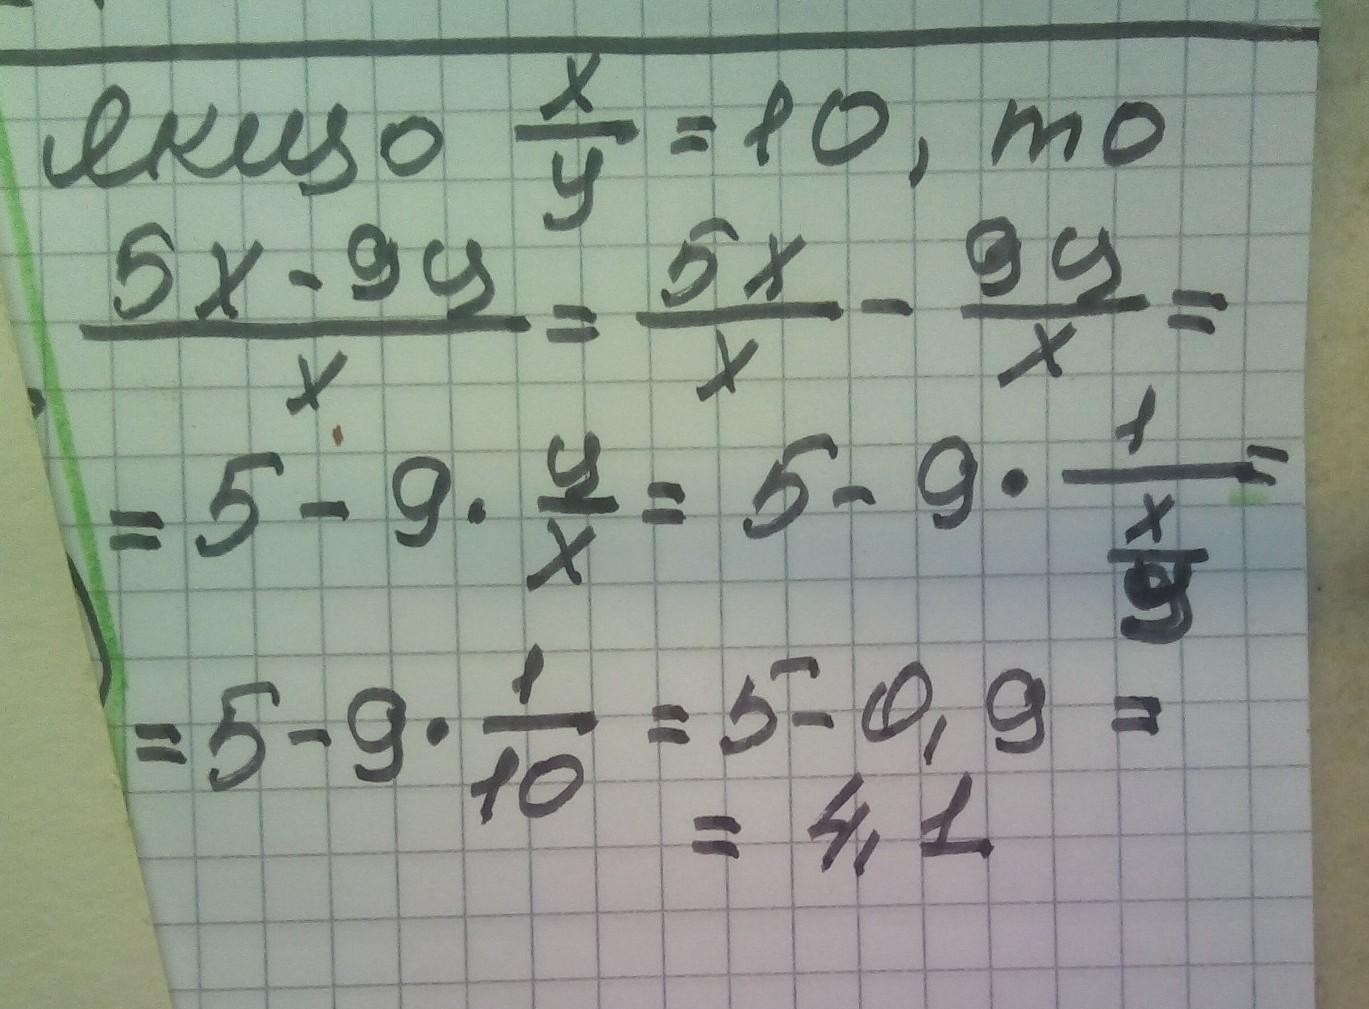 якщо x/y = 10, то
(5x - 9y)/x = 5x/x - 9y/x =
= 5 - 9 · y/x = 5 - 9 · 1/(x/y) =
= 5 - 9 · 1/10 = 5 - 0,9 =
= 4,1